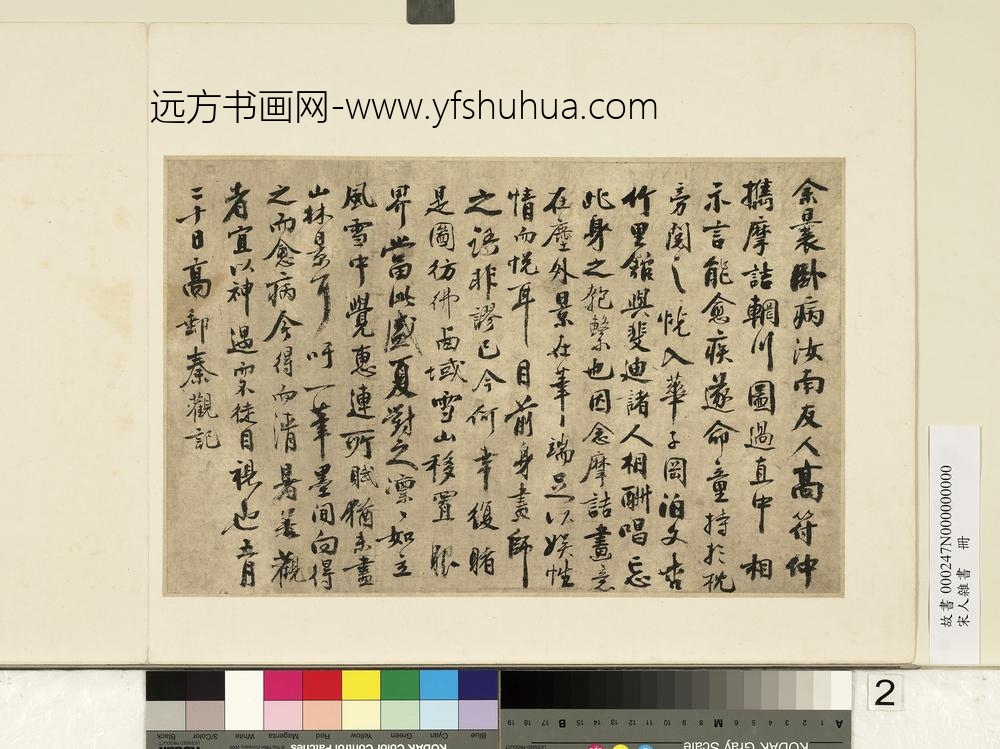 远方书画网-www.yfshuhua.com
余曩卧病汝南友人高符仲
携摩诘輞川圖過直中相
示言能愈疾遂命童持於枕
旁閱之恍入華子岡泊文杏
竹里館與斐迪諸人相酬唱忘
此身之匏繫也因念摩詰畫意
在塵外景在筆端足以娱性
情而悦耳目前身畫師
之語非謬已今何幸復睹
是圖彷彿西域雪山移置眼
界當此盛夏對之凛〻如立
風雪中覺惠連所賦猶未盡
山林景耳吁一筆墨間向得
之而愈病今得而清暑善觀
者宜以神遇而不徒目視也五月
二十日高郵秦觀記
故書 000247N000000000
宋人雜書 冊
2
Blue Cyan Green Yellow Red Magenta White 3/Color Black
KODAK Color Control Patches
KODAK Gray Scale
A 1 2 3 4 5 6 M 8 9 10 11 12 13 14 15 B 17 18 19